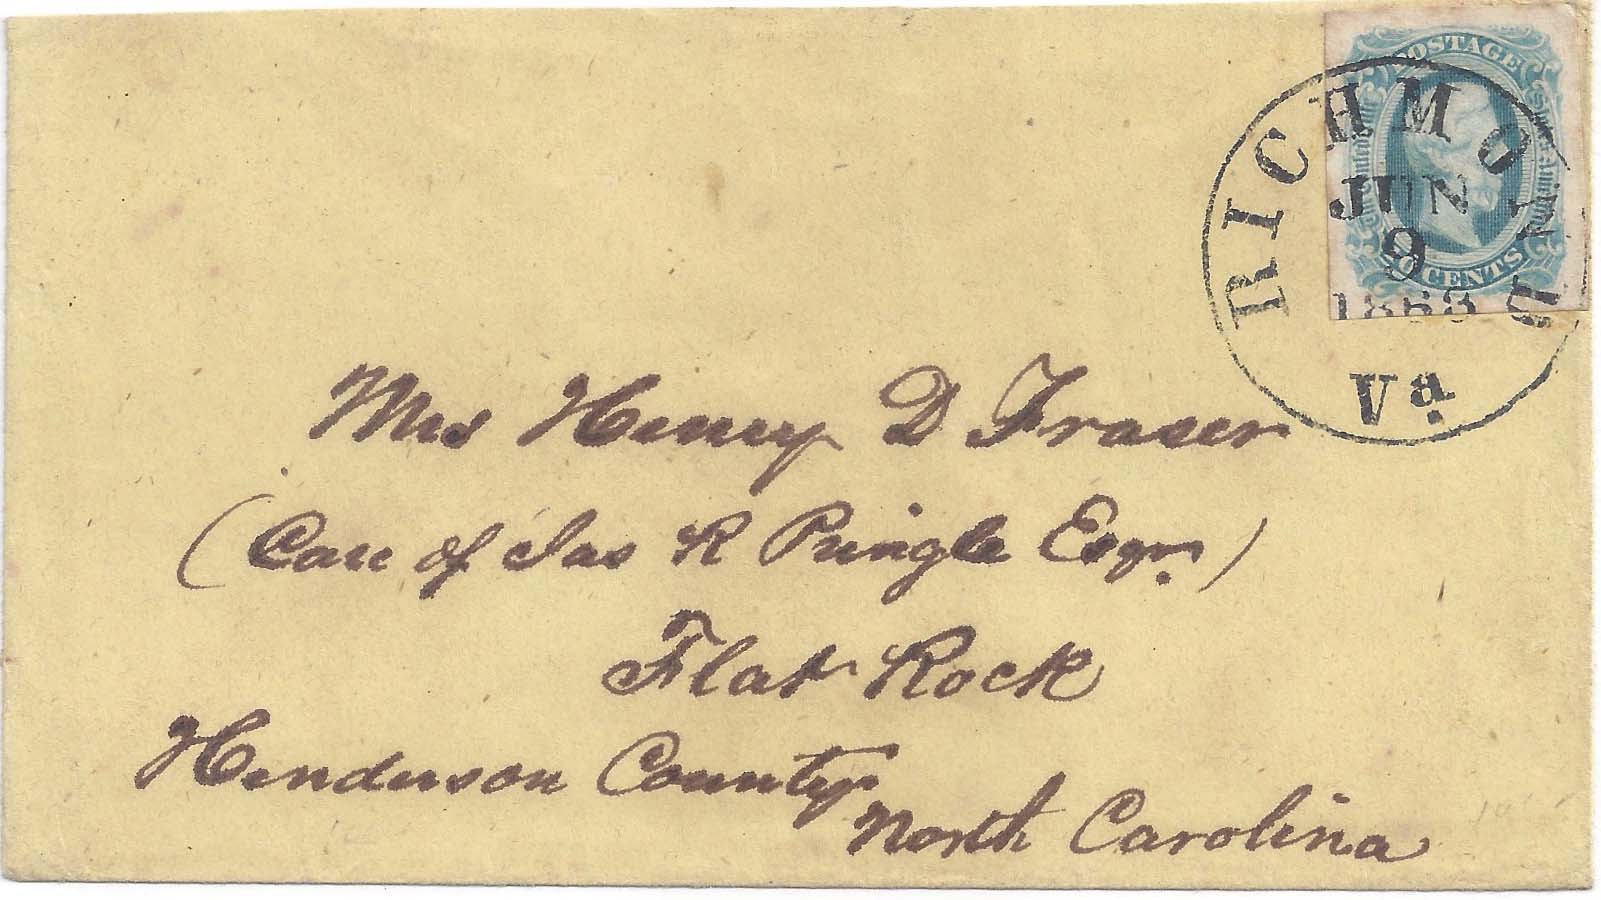 POSTAGE
The Confederate States of America
CENTS
RICHMOND
JUN
9
1863
Va.
Mrs Henry D Fraser
(Care of Jas R Pringle Esqr.)
Flat Rock
Henderson County
North Carolina